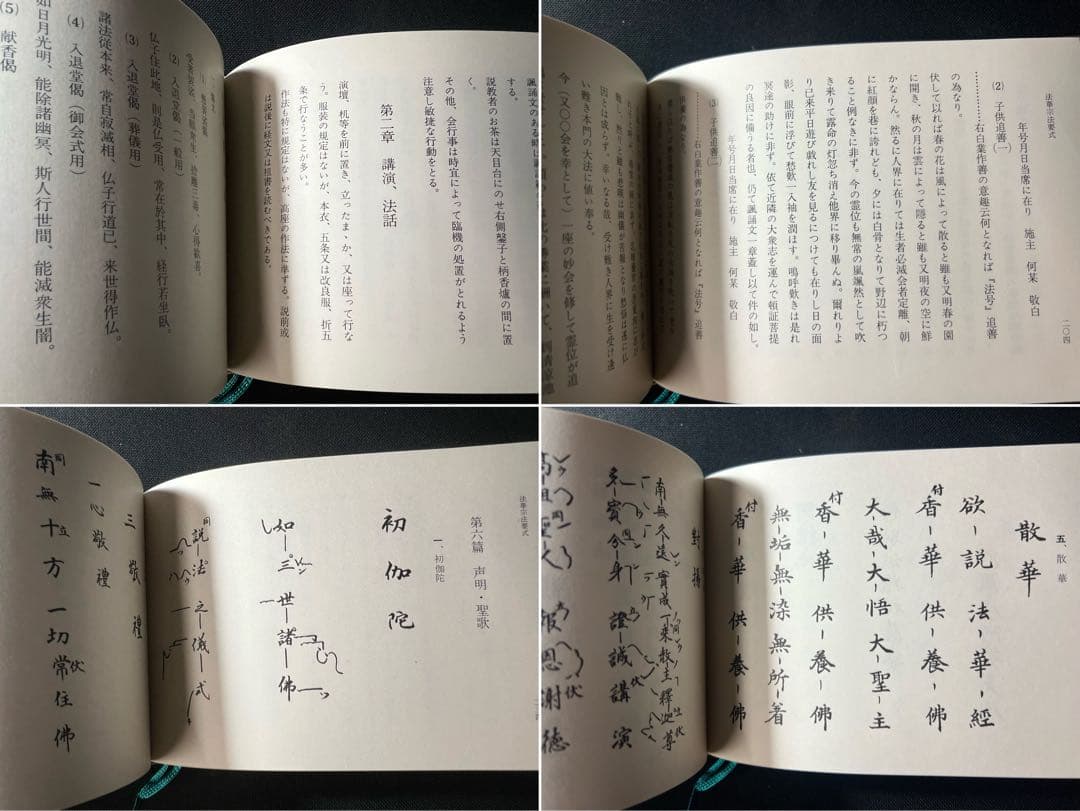 する。
説教者のお茶は天目台にのせ右側磬子と柄香爐の間に置
その他、会行事は時宜によって臨機の処置がとれるよう
注意し敏捷な行動をとる。
第二章 講演、法話
演壇、机等を前に置き、立ったまゝか、又は座って行な
う。服装の規定はないが、本衣、五条又は改良服、折五
条で行なうことが多い。
作法も特に規定はないが、高座の作法に準ずる。説前或
は説後に経文又は祖書を読むべきである。
(2) 入退堂偈(一般用)
仏子住此地、則是仏受用、常在於其中、経行若坐臥。
(3) 入退堂偈(葬儀用)
諸法従本来、常自寂滅相、仏子行道已、来世得作仏。
(4) 入退堂偈(御会式用)
如日月光明、能除諸幽冥、斯人行世間、能滅衆生闇。
(5) 献香偈
法華宗法要式
二〇四
年号月日当席に在り 施主 何某 敬白
(2) 子供追善(一)
………右白業作善の意趣云何となれば『法号』追善
の為なり。
伏して以れば春の花は風によって散ると雖も又明春の園
に開き、秋の月は雲によって隠ると雖も又明夜の空に鮮
かならん。然るに人界に在りては生者必滅会者定離、朝
に紅顔を巷に誇れども、夕には白骨となりて野辺に朽つ
ること例なきに非ず。今の霊位も無常の嵐颯然として吹
き来りて露命の灯忽ち消え他界に移り畢んぬ。爾れりよ
り已来平日遊び戯れし友を見るにつけても在りし日の面
影、眼前に浮びて愁歎一入袖を潤ほす。嗚呼歎きは是れ
冥途の助けに非ず。依て近隣の大衆志を運んで頓証菩提
の良因に備うる者也、仍て諷誦文一章蓋し以て件の如し。
年号月日当席に在り 施主 何某 敬白
(3) 子供追善(二)
………右白業作善の意趣云何となれば『法号』追善
い難き本門の大法に値い奉る。
今(又〇〇会を幸として)一座の妙会を修して霊位が追
法華宗法要式
第六篇 声明・聖歌
一、初伽陀
初伽陀
如三世諸佛
説法之儀式
三敬禮
一心敬禮
南無十方一切常住佛
五 散華
散華
欲説法華經
香華供養佛
大哉大悟大聖主
香華供養佛
無垢無染無所著
香華供養佛
對揚
證誠講演
恩謝徳